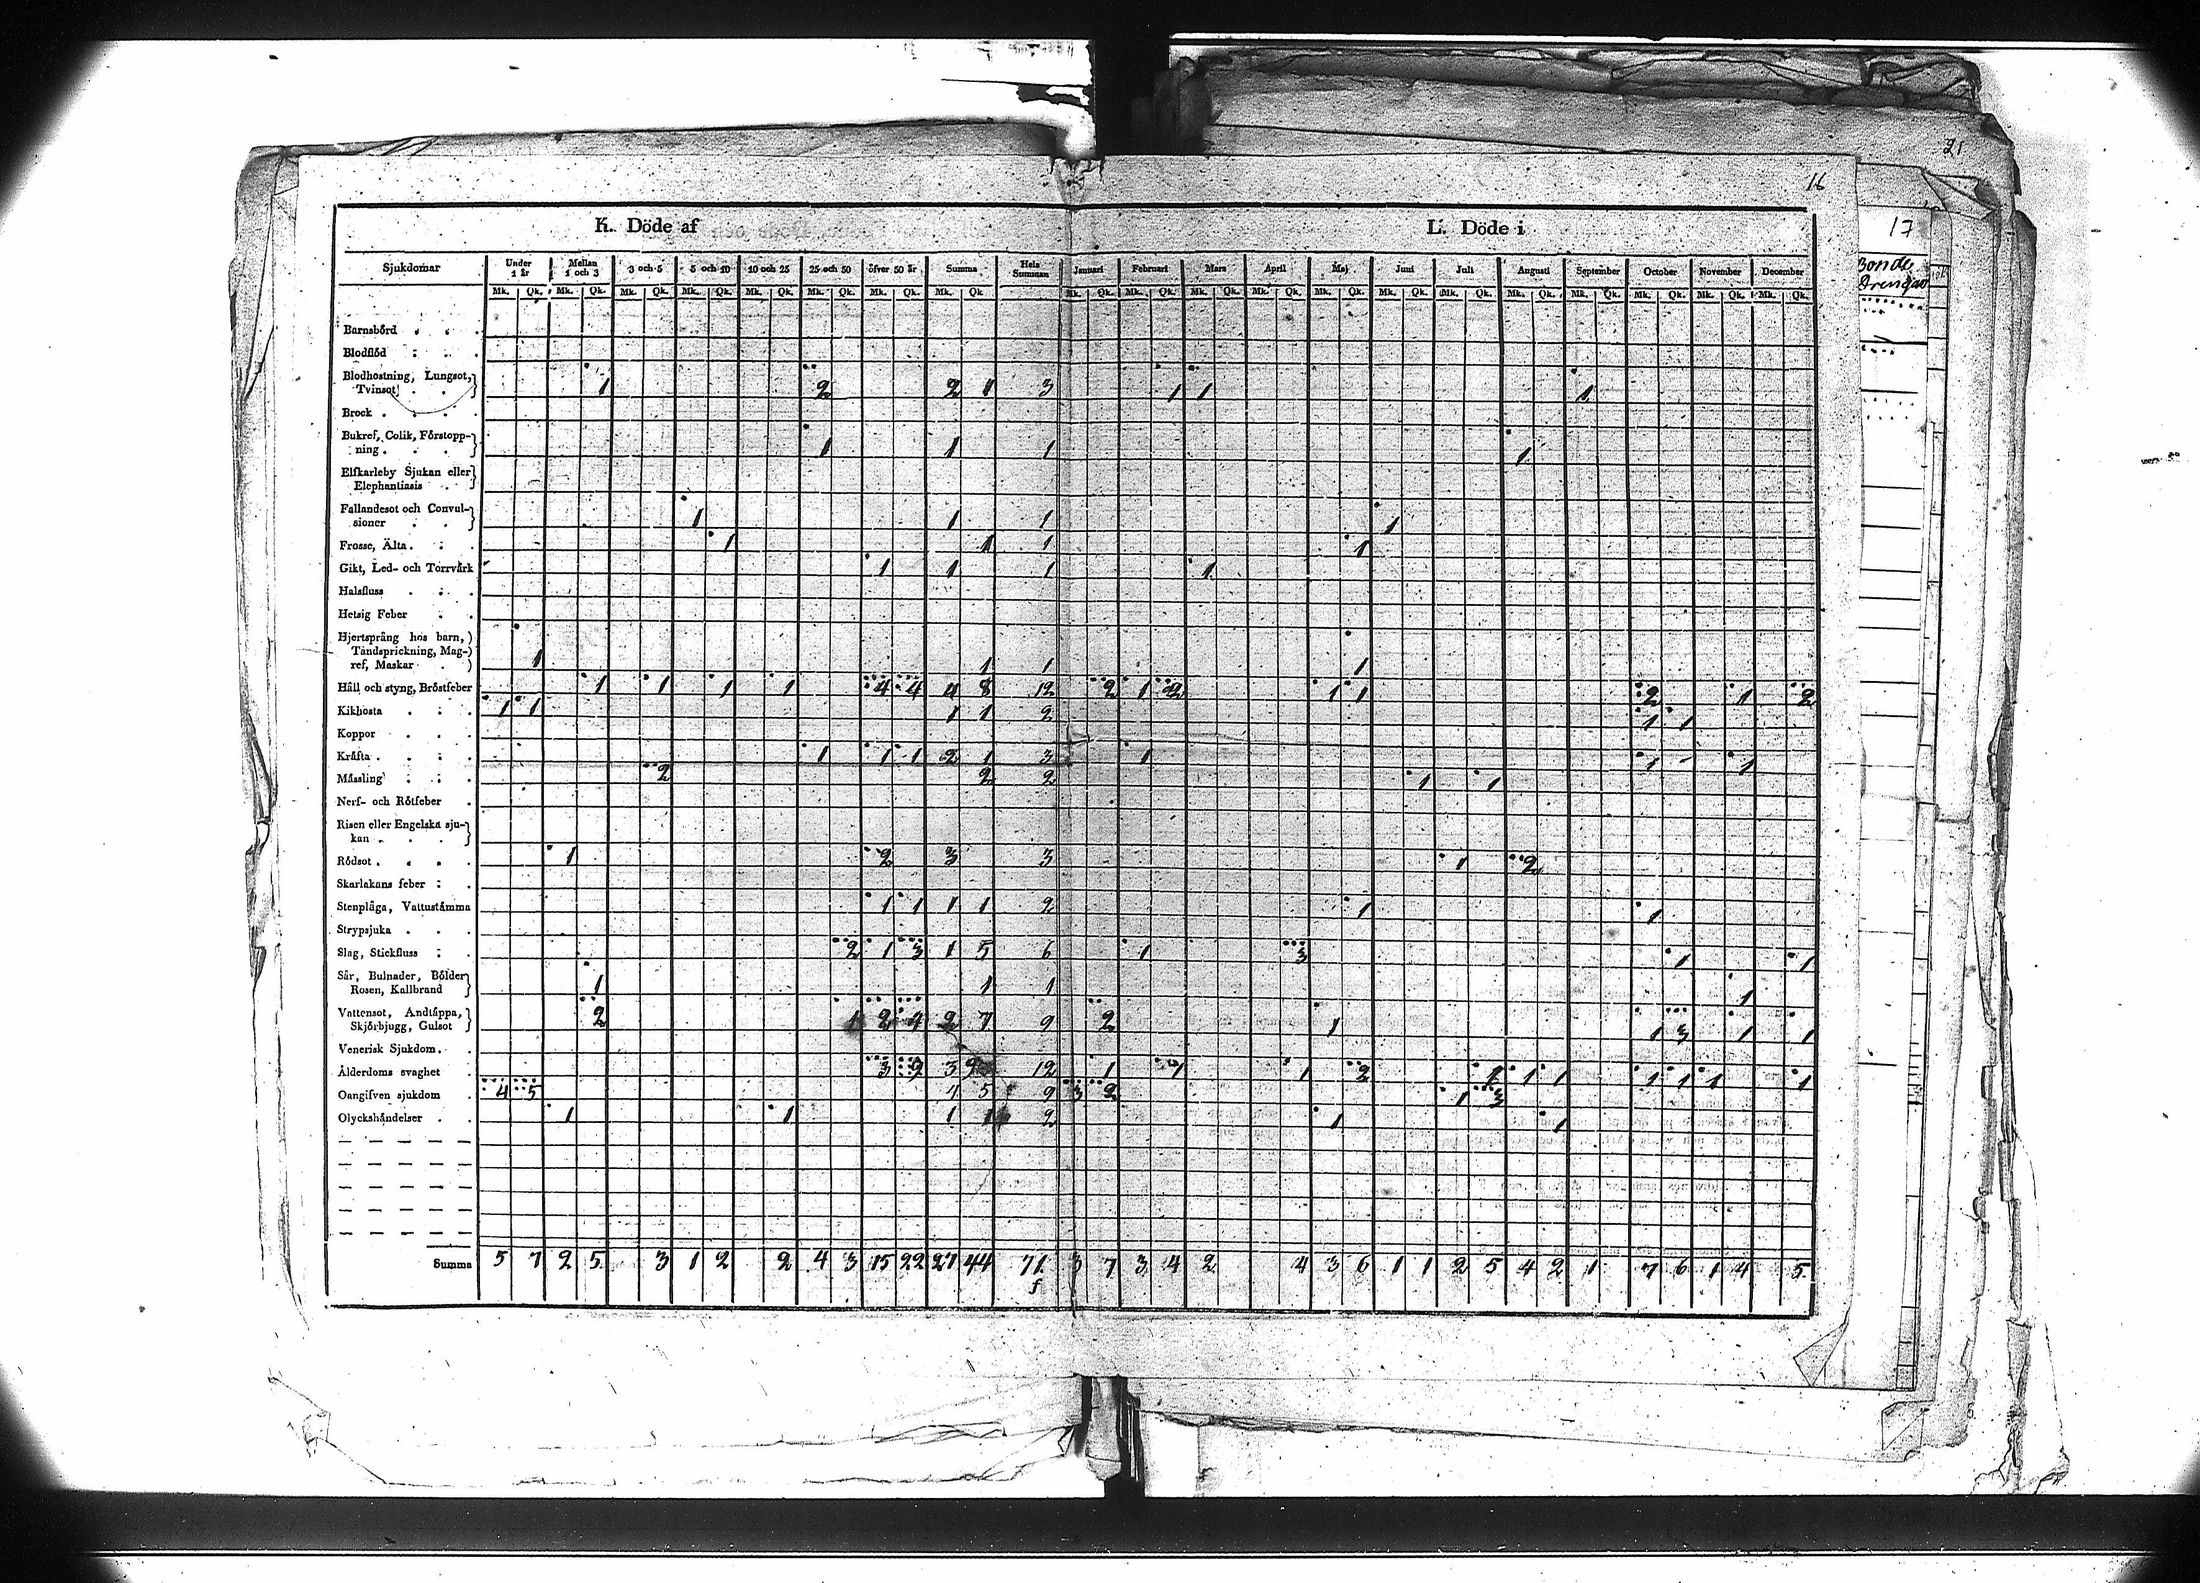 21
16
17
Bonde
K. Döde af L. Döde i
Sjukdomar Under 1 år Mellan 1 och 3 3 och 5 5 och 10 10 och 25 25 och 50 öfver 50 år Summa Hela Summan Januari Februari Mars April Maj Juni Juli Augusti September October November December
Mk. Qk. Mk. Qk. Mk. Qk. Mk. Qk. Mk. Qk. Mk. Qk. Mk. Qk. Mk. Qk. Mk. Qk. Mk. Qk. Mk. Qk. Mk. Qk. Mk. Qk. Mk. Qk. Mk. Qk. Mk. Qk. Mk. Qk. Mk. Qk. Mk. Qk. Mk. Qk.
Barnsbörd
Blodflöd
Blodhostning, Lungsot,
Tvinsot 1 2 2 1 3 1 1 1
Brock
Bukref, Colik, Förstopp-
ning 1 1 1 1
Elfkarleby Sjukan eller
Elephantiasis
Fallandesot och Convul-
sioner 1 1 1 1
Frossa, Älta 1 1 1 1
Gikt, Led- och Torrvärk 1 1 1 1
Halsfluss
Hetsig Feber
Hjertsprång hos barn,
Tandsprickning, Mag-
ref, Maskar 1 1 1 1
Håll och styng, Bröstfeber 1 1 1 1 4 4 4 8 12 2 1 2 1 1 2 1 2
Kikhosta 1 1 1 1 2 1 1
Koppor
Kräfta 1 1 1 2 1 3 1 1 1
Mässling 2 2 2 1 1
Nerf- och Rötfeber
Risen eller Engelska sju-
kan
Rödsot 1 2 3 3 1 2
Skarlakans feber
Stenplåga, Vattustämma 1 1 1 1 2 1 1
Strypsjuka
Slag, Stickfluss 2 1 3 1 5 6 1 3 1 1
Sår, Bulnader, Bölder
Rosen, Kallbrand 1 1 1 1
Vattensot, Andtäppa,
Skjörbjugg, Gulsot 2 1 2 4 2 7 9 2 1 1 3 1 1
Venerisk Sjukdom
Ålderdoms svaghet 3 9 3 9 12 1 1 1 2 1 1 1 1 1 1 1
Oangifven sjukdom 4 5 4 5 9 3 2 1 3
Olyckshändelser 1 1 1 1 2 1 1
Summa 5 7 2 5 3 1 2 2 4 3 15 22 27 44 71 3 7 3 4 2 4 3 6 1 1 2 5 4 2 1 7 6 1 4 5